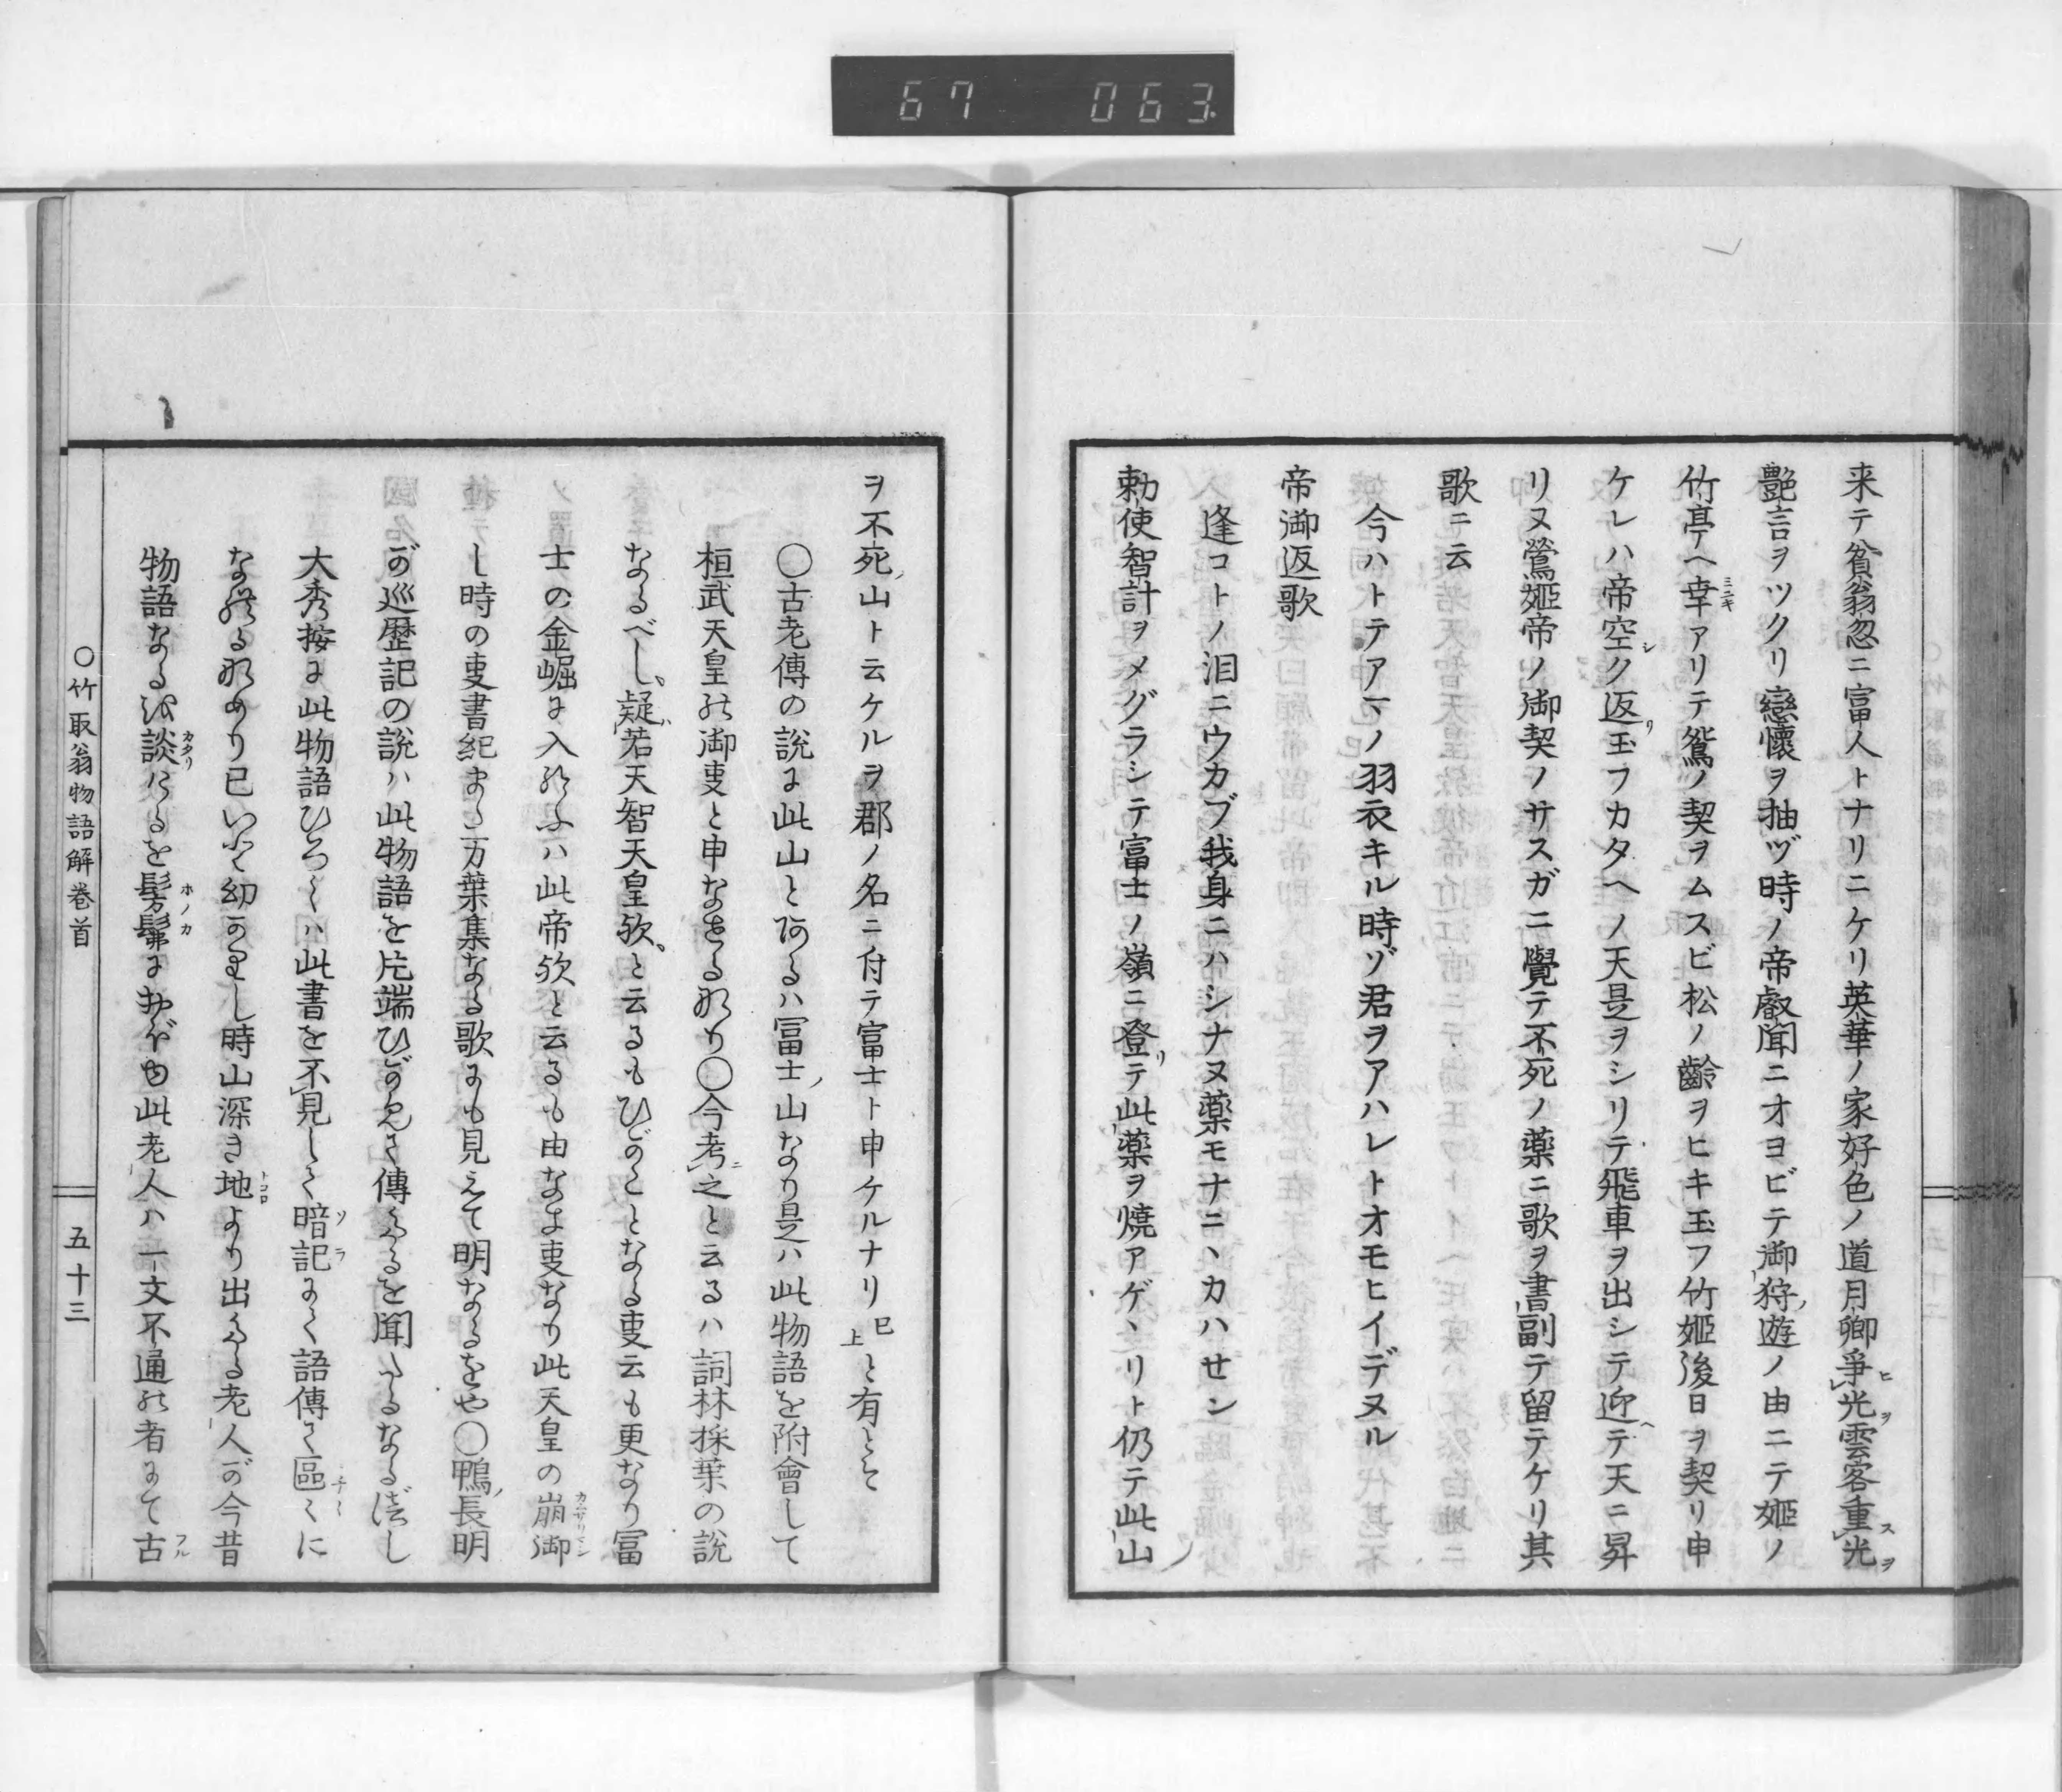 67 063
来テ貧翁忽ニ富人トナリニケリ英華ノ家好色ノ道月卿争光ヒヲ雲客重光スヲ
艶言ヲツクリ戀懷ヲ抽ヅ時ノ帝叡聞ニオヨビテ御狩遊ノ由ニテ姫ノ
竹亭ヘ幸ミユキアリテ鴛ノ契ヲムスビ松ノ齡ヲヒキ玉フ竹姫後日ヲ契リ申
ケレハ帝空シク返リ玉フカタヘノ天是ヲシリテ飛車ヲ出シテ迎ヘテ天ニ昇
リヌ鶯姫帝ノ御契ノサスガニ覺テ不死ノ薬ニ歌ヲ書副テ留テケリ其
歌ニ云
今ハトテアマノ羽衣キル時ゾ君ヲアハレトオモヒイデヌル
帝御返歌
逢コトノ泪ニウカブ我身ニハシナヌ薬モナニヽカハせン
勅使智計ヲメグラシテ富士ノ嶺ニ登リテ此薬ヲ燒アゲヽリト仍テ此山
ヲ不死ノ山ト云ケルヲ郡ノ名ニ付テ富士ト申ケルナリ已上と有とぞ
○古老傳の説に此山と有るハ冨士ノ山なり是ハ此物語を附會して
桓武天皇の御叓と申なせる物り○今考ニ之と云るハ詞林採葉の説
なるべし、疑若天智天皇欤、と云るもひがことなる叓云も更なり冨
士の金崛に入給ふハ此帝欤と云るも由なき叓なり此天皇の崩御カムサリマシ
し時の叓書紀また万葉集なる歌にも見えて明なるをや○鴨ノ長明
が巡歴記の説ハ此物語を片端ひがめて傳たるを聞たるなるべし
大秀按に此物語ひろくハ此書を不見して暗記ソラにて語傳て區〻チヾに
なれる物あり已いと幼かりし時山深き地トコロより出たる老人が今昔
物語なるを談カタりけるを髣髴ホノカにおぼゆ此老人ハ一文不通の者にて古フル
○竹取翁物語解巻首
五十三